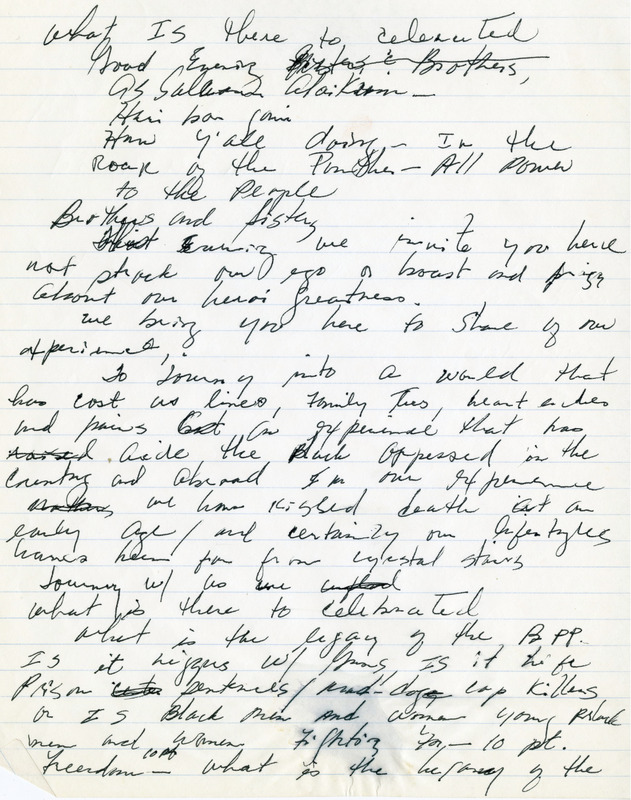 what Is there to celebrated
Good Evening Sisters & Brothers,
As Salaam Alaikum —
Hari bar
How y'all doing — In the
Roar of the Panther — All Power
to the People
Brothers and Sisters
evening we invite you here
not stroke our ego or boast and
about our heroi greatness.
we bring you here to Share of our
experiences,
To Journey into a world that
has cost us lives, Family Ties, heart aches
and pains But An experience that has
raised aide the Black oppressed in the
country and abroad In our experience
we have kissed death at an
early age / and certainly our lifestyles
haves been far from crystal stairs
Journey w/ us
what is there to celebrated
what is the legacy of the BPP.
Is it niggas w/ guns Is it life
Prison sentences / mad-dog cop killers
or Is Black men and women young Black
men and women Fighting for — 10 pt.
Freedom — what is the legacy of the